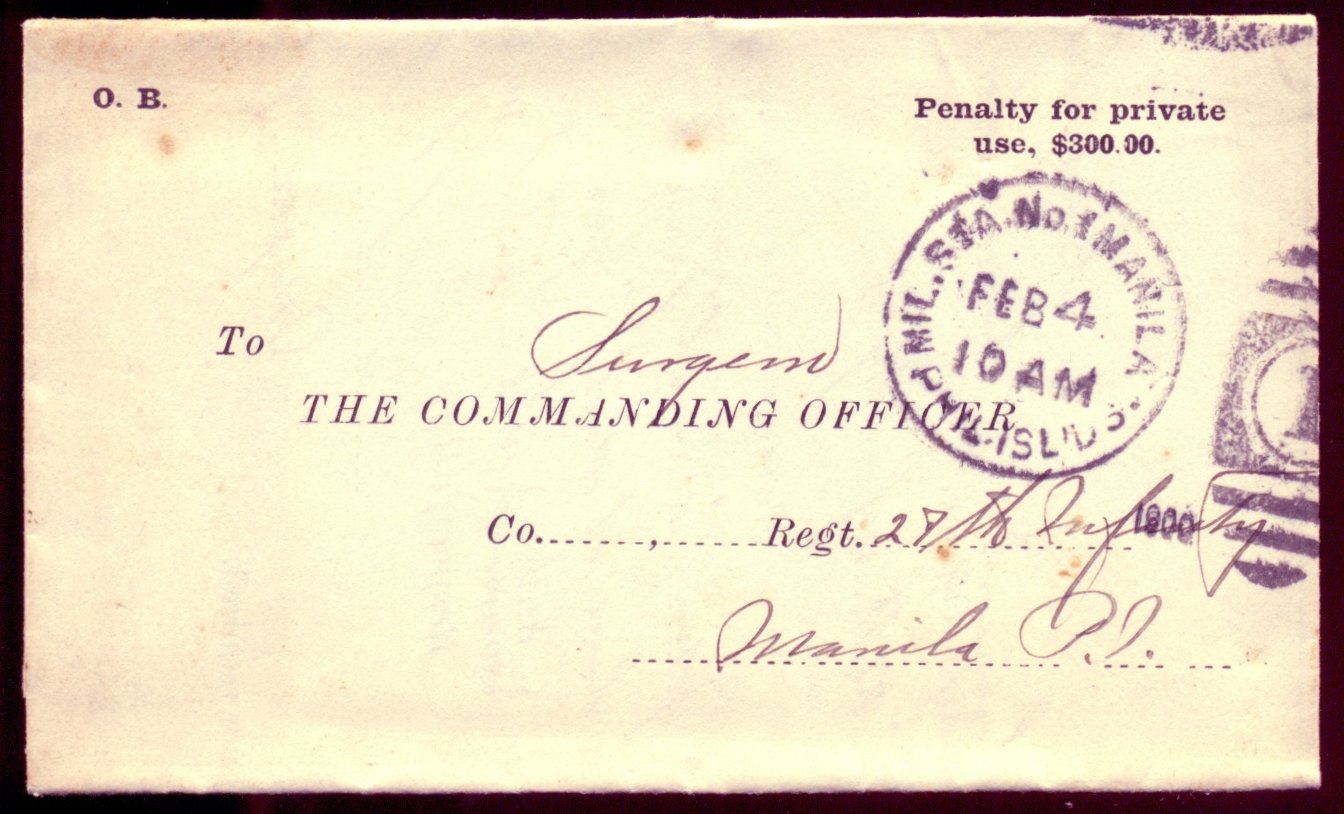 O. B.
Penalty for private
use, $300.00.
MIL. STA. No. 1 MANILA
FEB 4
10 AM
PHIL. ISL'DS.
1900
1
To
Surgeon
THE COMMANDING OFFICER
Co.......,......Regt. 27th Infty
Manila P.I.